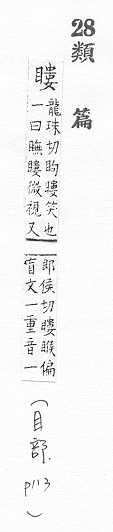 28 類篇
瞜
龍珠切眗瞜笑也
一曰瞴瞜微視又
郎侯切瞜睺偏
盲文一重音一
(目部. p113)